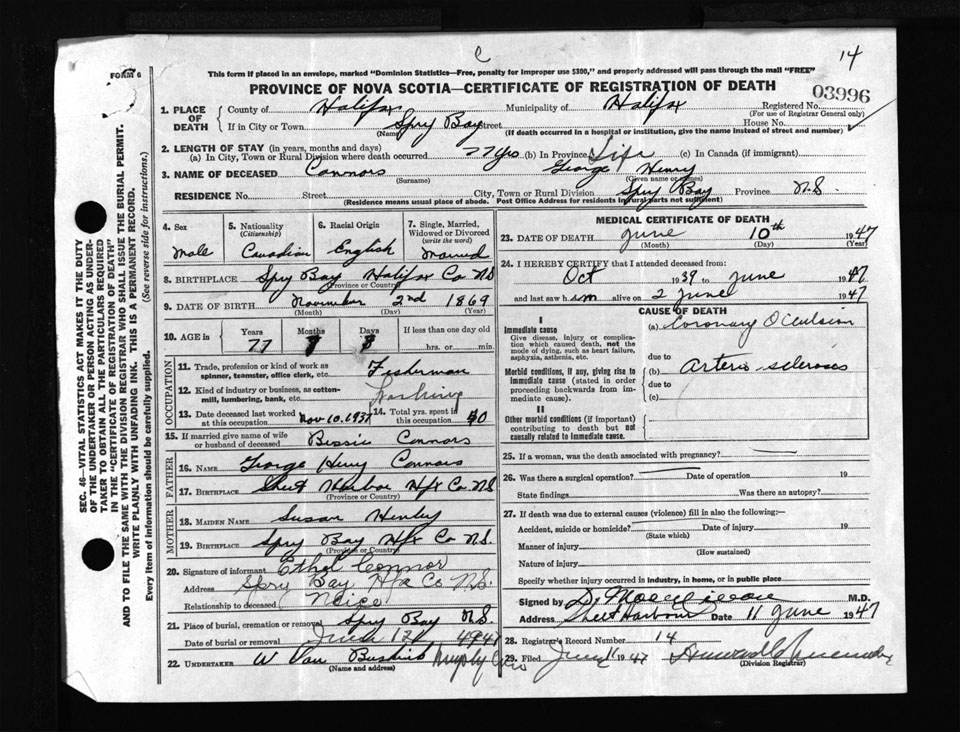 C
14
FORM 6
This form if placed in an envelope, marked "Dominion Statistics—Free, penalty for improper use $300," and properly addressed will pass through the mail "FREE"
PROVINCE OF NOVA SCOTIA—CERTIFICATE OF REGISTRATION OF DEATH
03996
SEC. 46—VITAL STATISTICS ACT MAKES IT THE DUTY
OF THE UNDERTAKER OR PERSON ACTING AS UNDER-
TAKER TO OBTAIN ALL THE PARTICULARS REQUIRED
IN THE "CERTIFICATE OF REGISTRATION OF DEATH"
AND TO FILE THE SAME WITH THE DIVISION REGISTRAR WHO SHALL ISSUE THE BURIAL PERMIT.
WRITE PLAINLY WITH UNFADING INK. THIS IS A PERMANENT RECORD.
Every item of information should be carefully supplied. (See reverse side for instructions.)
1. PLACE OF DEATH County of Halifax Municipality of Halifax Registered No.
(For use of Registrar General only)
If in City or Town Spry Bay Street House No.
(Name) (If death occurred in a hospital or institution, give the name instead of street and number)
2. LENGTH OF STAY (in years, months and days)
(a) In City, Town or Rural Division where death occurred 77 yrs (b) In Province Life (c) In Canada (if immigrant)
3. NAME OF DECEASED Connors George Henry
(Surname) (Given name or names)
RESIDENCE No. Street City, Town or Rural Division Spry Bay Province N.S.
(Residence means usual place of abode. Post Office Address for residents in rural parts not sufficient)
4. Sex Male
5. Nationality (Citizenship) Canadian
6. Racial Origin English
7. Single, Married, Widowed or Divorced (write the word) Married
8. BIRTHPLACE Spry Bay Halifax Co N.S
(Province or Country)
9. DATE OF BIRTH November 2nd 1869
(Month) (Day) (Year)
10. AGE in Years 77 Months Days If less than one day old hrs. or min.
OCCUPATION
11. Trade, profession or kind of work as spinner, teamster, office clerk, etc. Fisherman
12. Kind of industry or business, as cotton-mill, lumbering, bank, etc.
13. Date deceased last worked at this occupation Nov 10. 1937 14. Total yrs. spent in this occupation
15. If married give name of wife or husband of deceased Bessie Connors
FATHER
16. NAME George Henry Connors
17. BIRTHPLACE Sheet Harbor Hfx Co. N.S
(Province or Country)
MOTHER
18. MAIDEN NAME Susan Henley
19. BIRTHPLACE Spry Bay Hfx Co N.S.
(Province or Country)
20. Signature of informant Ethel Connor
Address Spry Bay Hfx Co N.S.
Relationship to deceased Neice
21. Place of burial, cremation or removal Spry Bay N.S.
Date of burial or removal June 12
22. UNDERTAKER W Van
(Name and address)
MEDICAL CERTIFICATE OF DEATH
23. DATE OF DEATH June 10th 1947
(Month) (Day) (Year)
24. I HEREBY CERTIFY that I attended deceased from:
Oct 1939 to June 1947
and last saw him alive on 2 June 1947
CAUSE OF DEATH
I
Immediate cause
Give disease, injury or complication which caused death, not the mode of dying, such as heart failure, asphyxia, asthenia, etc.
(a) Coronary Occlusion
due to
Morbid conditions, if any, giving rise to immediate cause (stated in order proceeding backwards from immediate cause).
(b) Arterio-sclerosis
due to
(c)
II
Other morbid conditions (if important) contributing to death but not causally related to immediate cause.
25. If a woman, was the death associated with pregnancy?
26. Was there a surgical operation? Date of operation 19
State findings Was there an autopsy?
27. If death was due to external causes (violence) fill in also the following:—
Accident, suicide or homicide? Date of injury 19
(State which)
Manner of injury
(How sustained)
Nature of injury
Specify whether injury occurred in industry, in home, or in public place
Signed by M.D.
Address Sheet Harbour Date 11 June 1947
28. Registrar's Record Number 14
29. Filed June 11 1947
(Division Registrar)